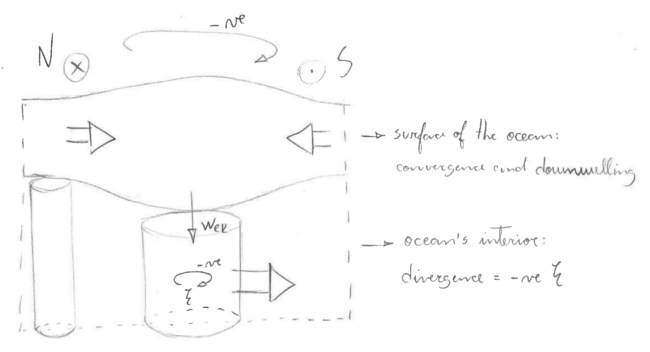 -ve
N
S
→ surface of the ocean:
convergence and downwelling
WEK
-ve
ξ
→ ocean's interior:
divergence = -ve ξ